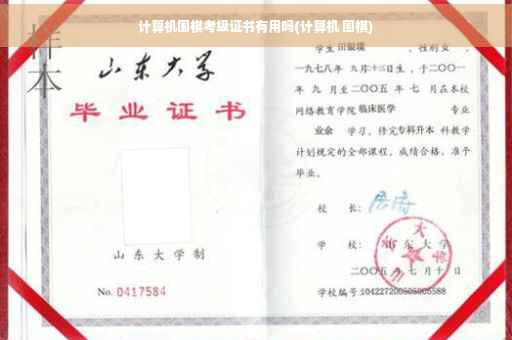 计算机围棋考级证书有用吗(计算机 围棋)
样本
山东大学
毕业证书
山东大学制
No. 0417584
学生 田敬瑞 ，性别 女 ，
一九七八年 九月十三日生，于二〇〇一
年 九 月至二〇〇五 年 七 月在本校
网络教育学院 临床医学 专业
业余 学习，修完专科升本 科教学
计划规定的全部课程，成绩合格，准予
毕业。
校 长：
学 校： 山东大学
二〇〇五 年 七 月 十 日
学校编号:104227200505005588